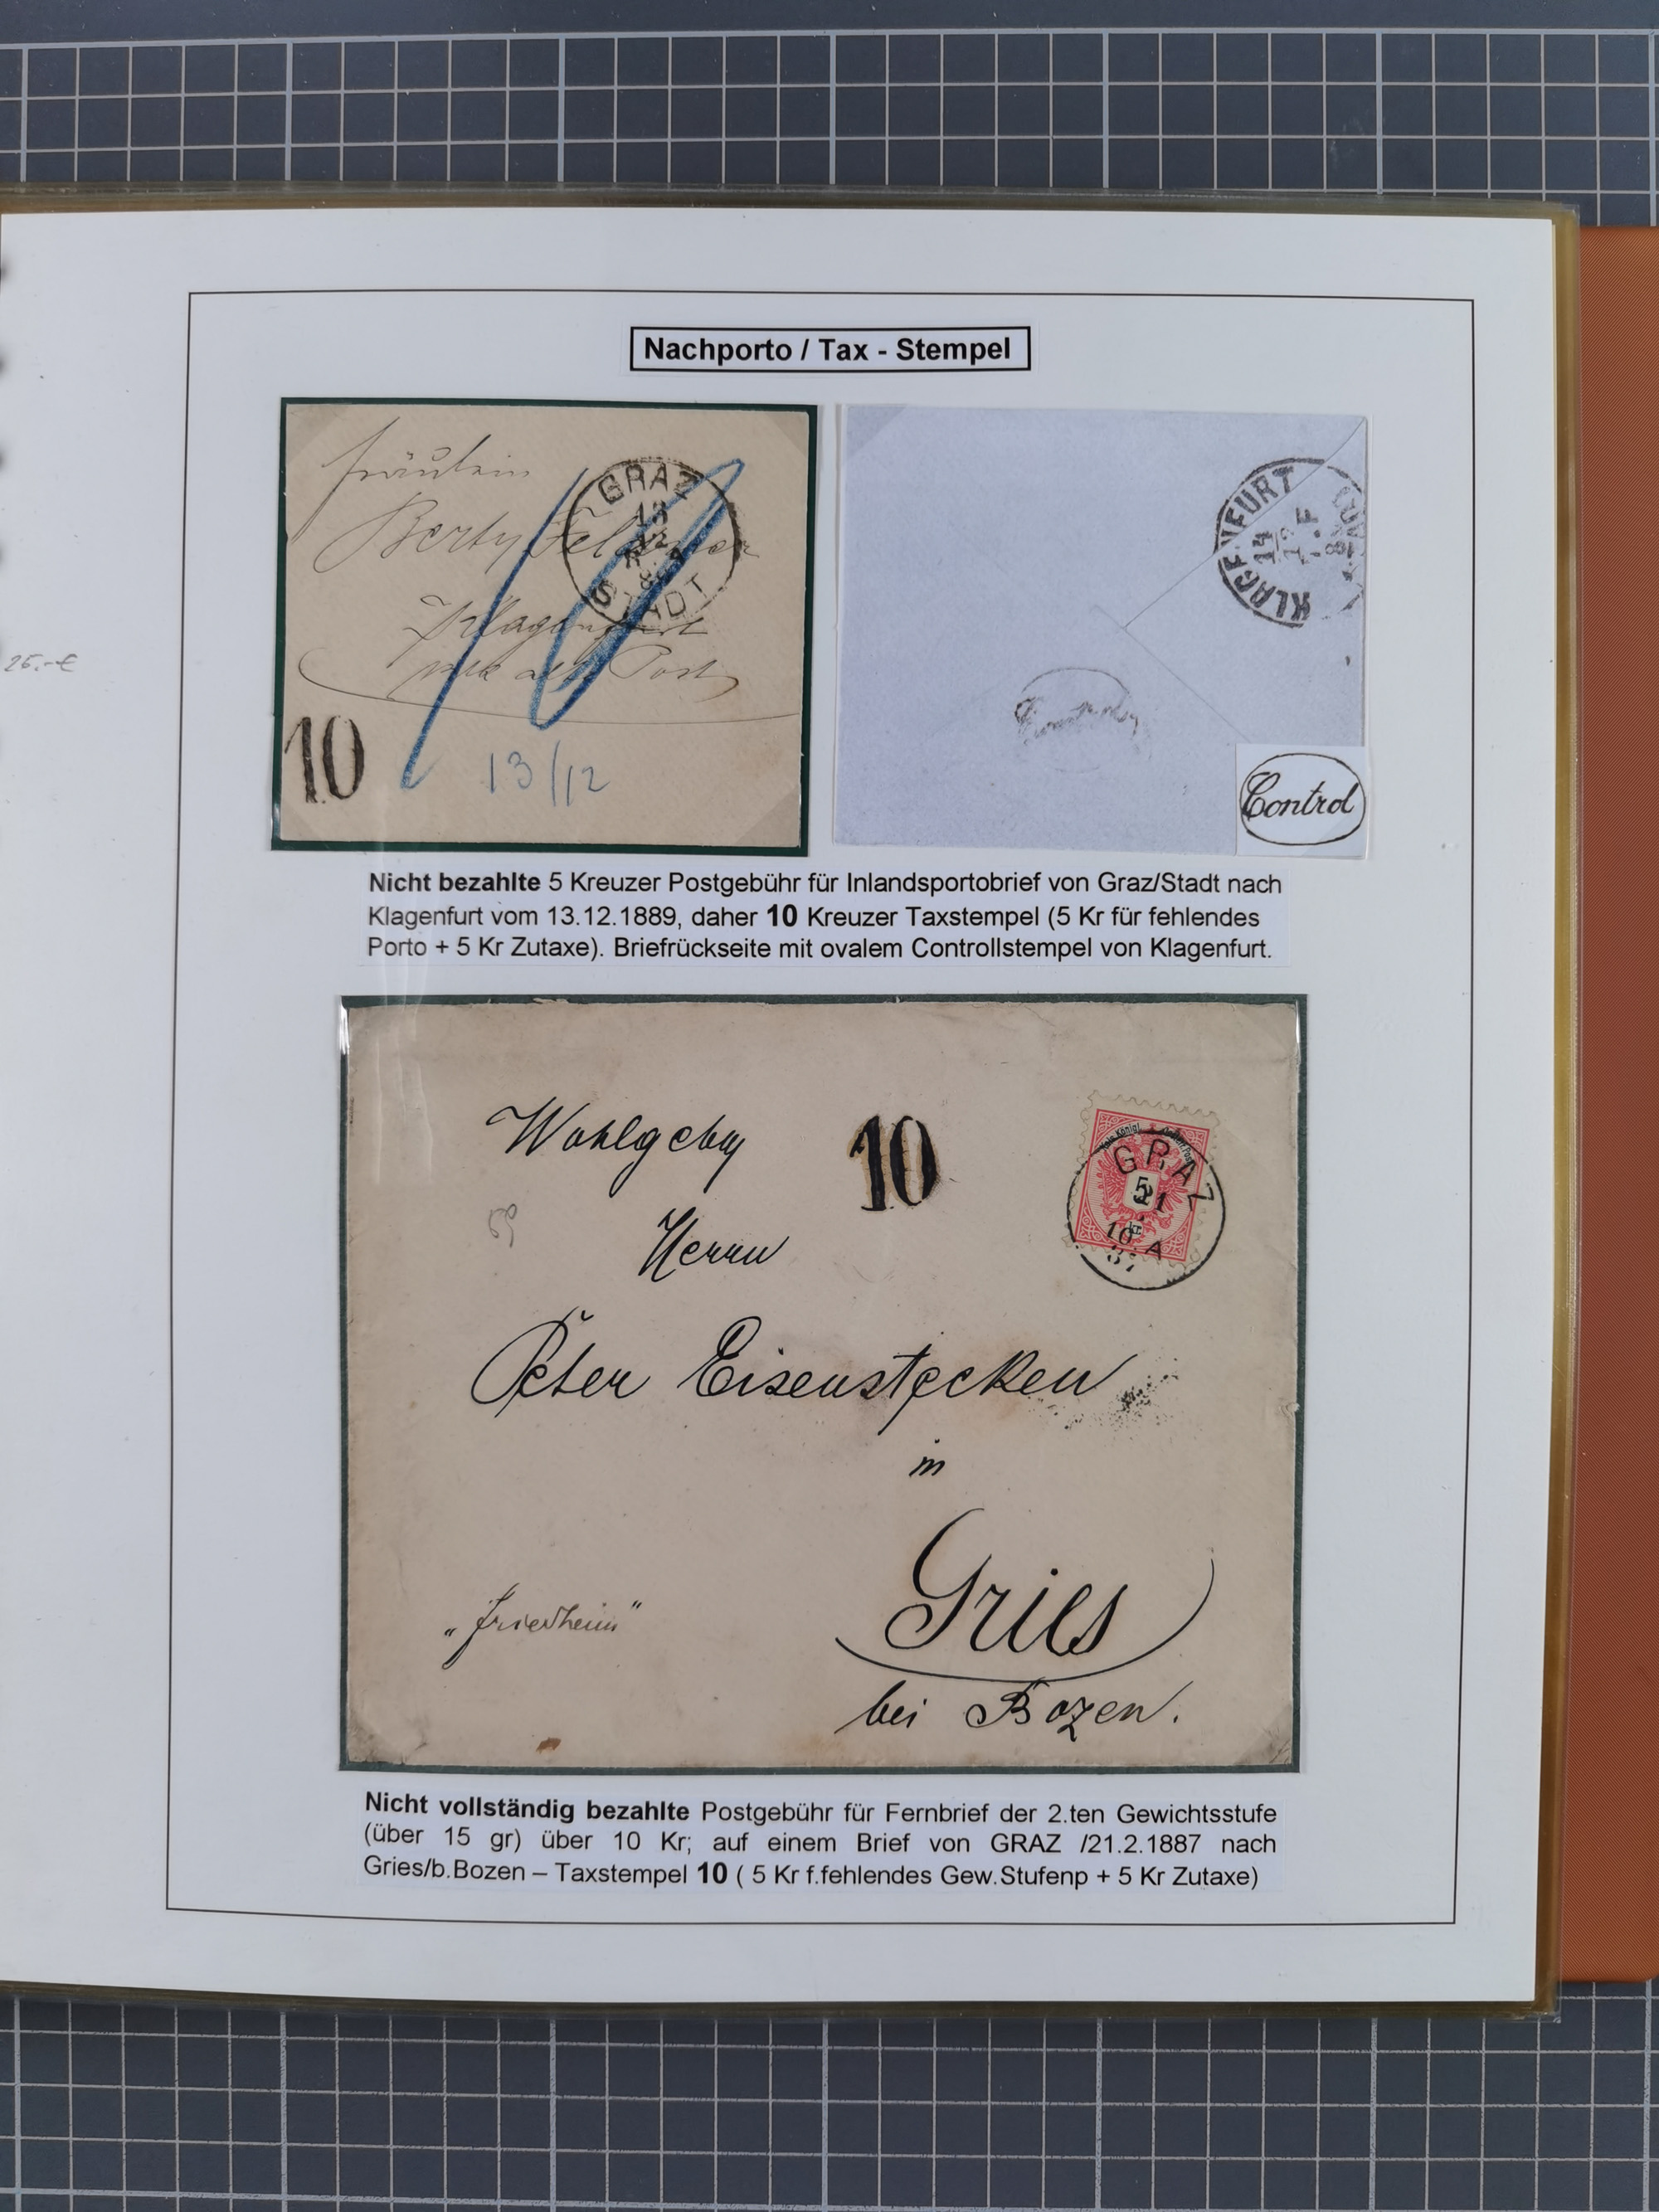 Nachporto / Tax - Stempel
Fräulein
Berty
Klagenfurt
Post
GRAZ
13
12
STADT
10
10
13/12
KLAGENFURT
14
12
Control
Control
25.-€
Nicht bezahlte 5 Kreuzer Postgebühr für Inlandsportobrief von Graz/Stadt nach
Klagenfurt vom 13.12.1889, daher 10 Kreuzer Taxstempel (5 Kr für fehlendes
Porto + 5 Kr Zutaxe). Briefrückseite mit ovalem Controllstempel von Klagenfurt.
Wohlgeb
10
GRAZ
21
10 A
87
5
Herrn
Peter Eisenstecken
in
Gries
"Friedheim"
bei Bozen.
Nicht vollständig bezahlte Postgebühr für Fernbrief der 2.ten Gewichtsstufe
(über 15 gr) über 10 Kr; auf einem Brief von GRAZ /21.2.1887 nach
Gries/b.Bozen – Taxstempel 10 ( 5 Kr f.fehlendes Gew.Stufenp + 5 Kr Zutaxe)